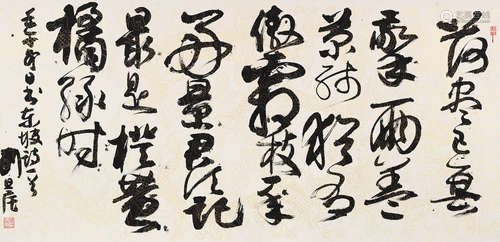 荷尽已無
擎雨盖
菊残猶有
傲霜枝一年
好景君须记
最是橙黄
橘绿时
书东坡诗一首
刘旦宅